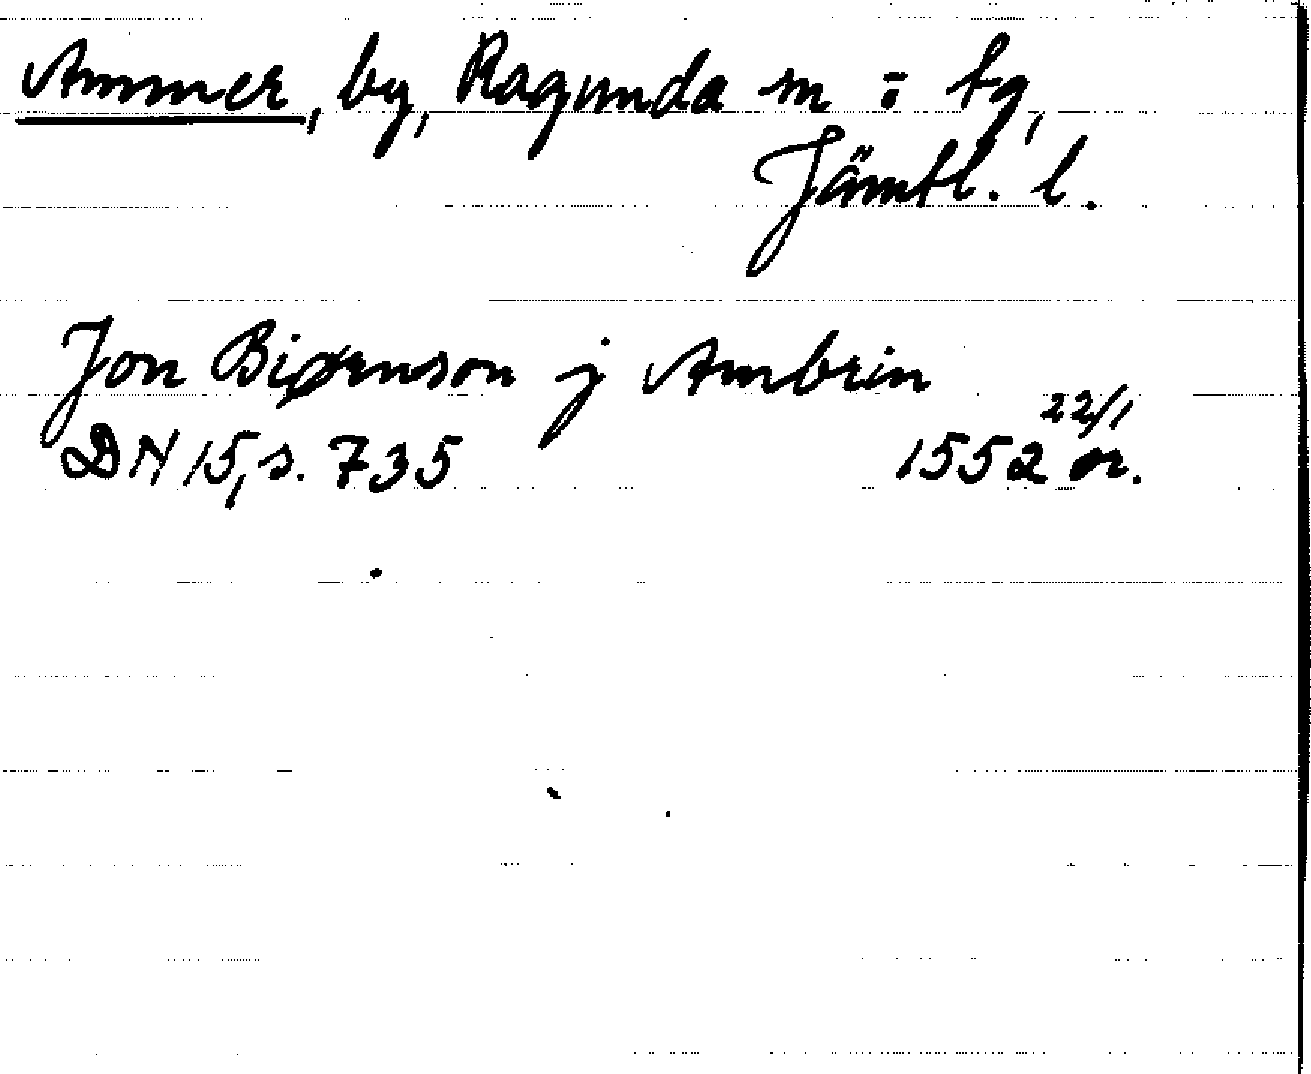 Ammer, by, Ragunda sn o: tg,
Jämtl. l.
Jon Biørnson j Ambrin
22/1
DN 15, s. 735 1552 or.